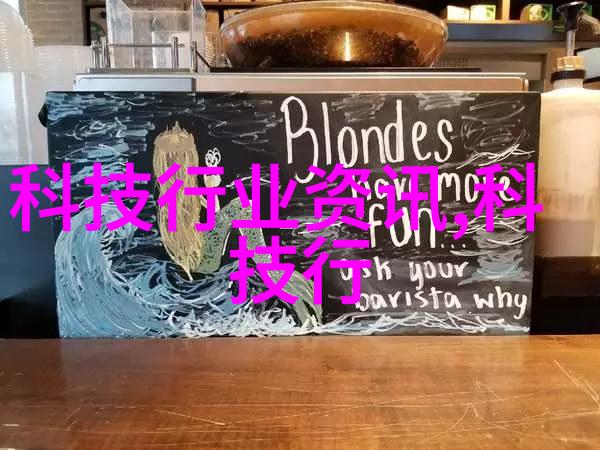 Blondes
have more
fun...
ask your
barista why
科技行业资讯,科
技行